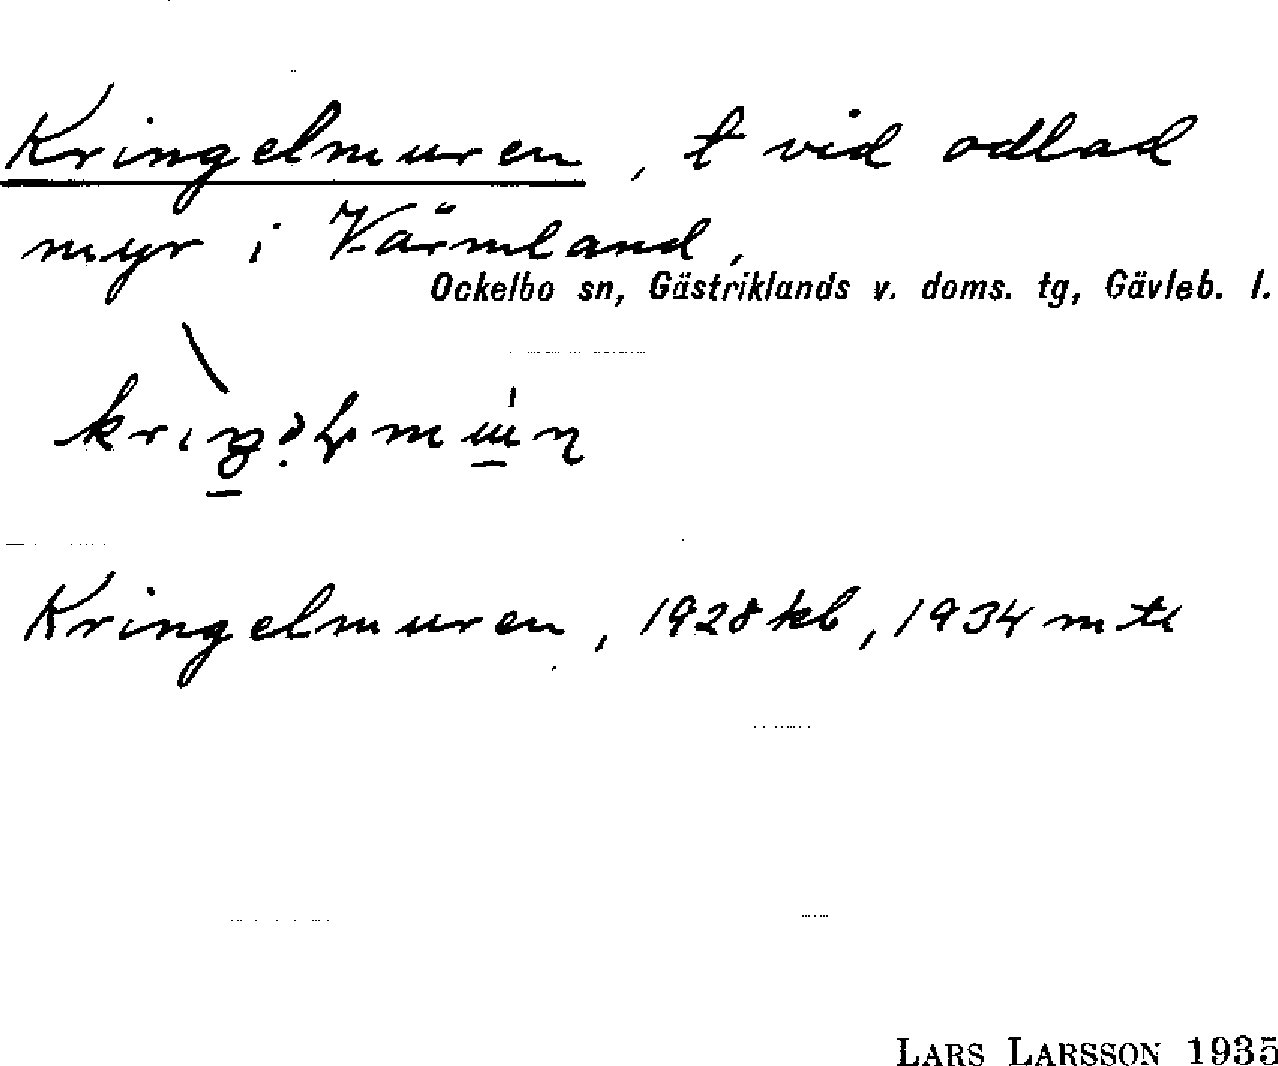 Kringelmuren, t vid odlad
myr i Värmland,
Ockelbo sn, Gästriklands v. doms. tg, Gävleb. l.
Kringelmuren, 1928 kb, 1934 mtl
LARS LARSSON 1935